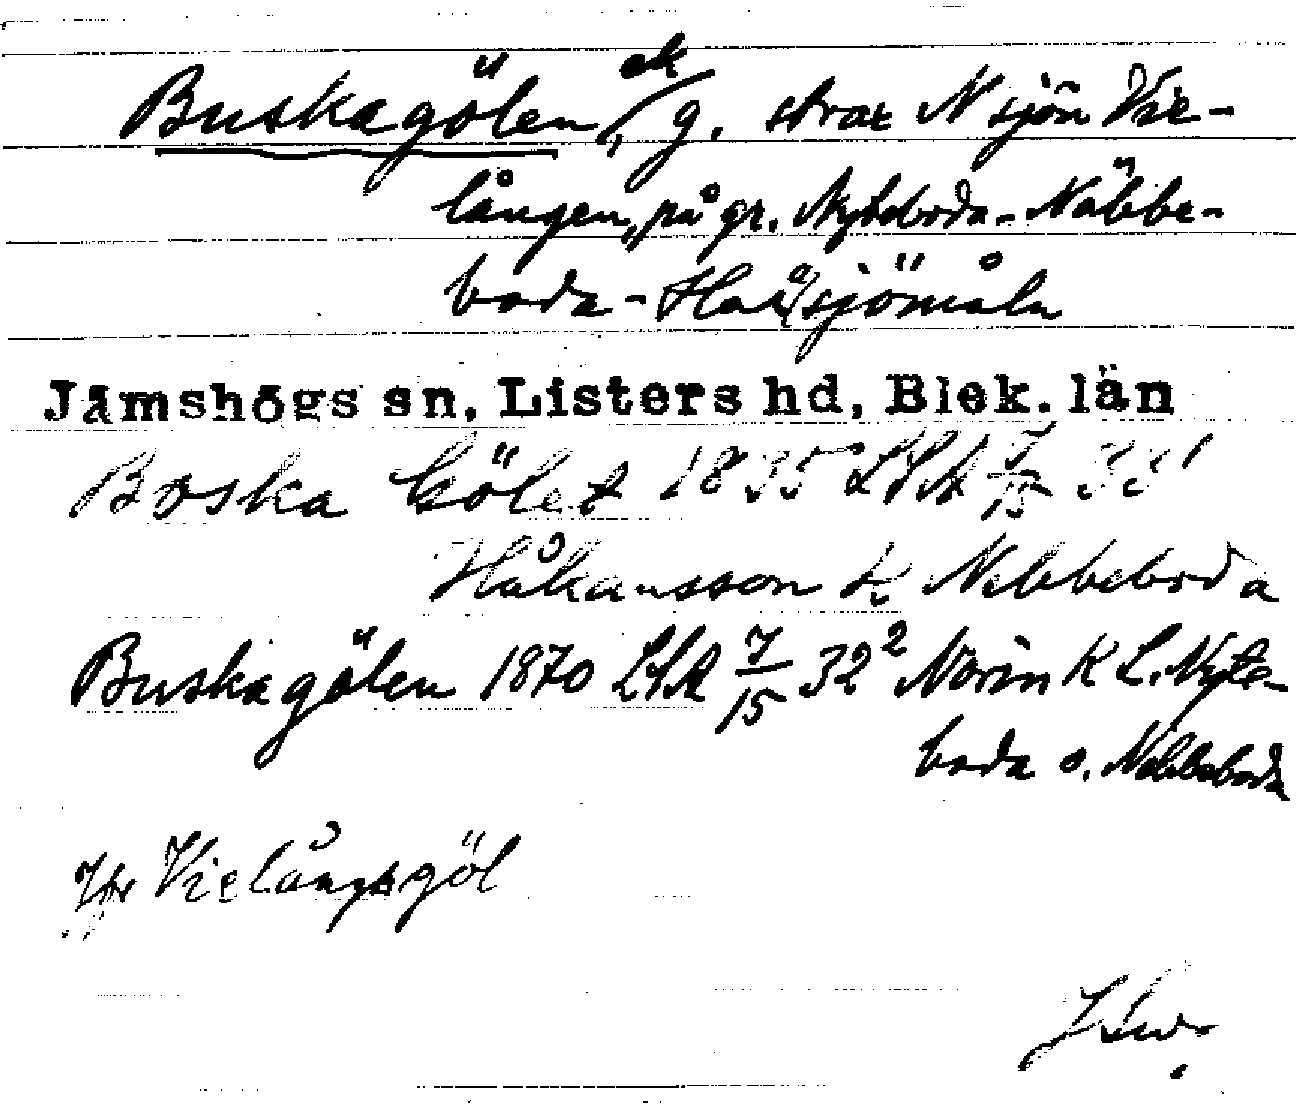 Buskagölen, ek g. strax N sjön Vie-
lången, på gr. Nyteboda-Näbbe-
boda-Haåsjömåla
Jämshögs sn, Listers hd, Blek. län
Boska Gölet 1835 LSA 7/15 33¹
Håkansson K Nebbeboda
Buskagölen 1870 LSA 7/15 32² Norin K L. Nyte-
boda o. Nebbeboda
Jfr Vielångsgöl